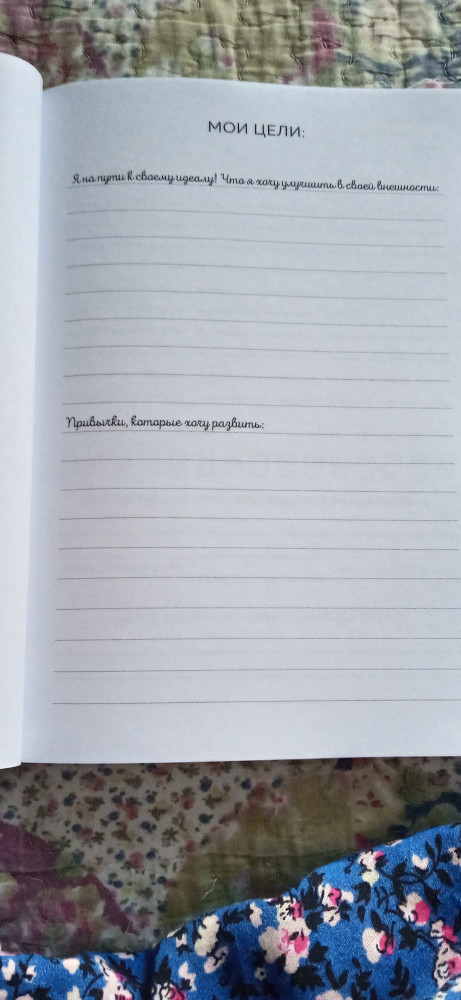 МОИ ЦЕЛИ:
Я на пути к своему идеалу! Что я хочу улучшить в своей внешности:
Привычки, которые хочу развить: